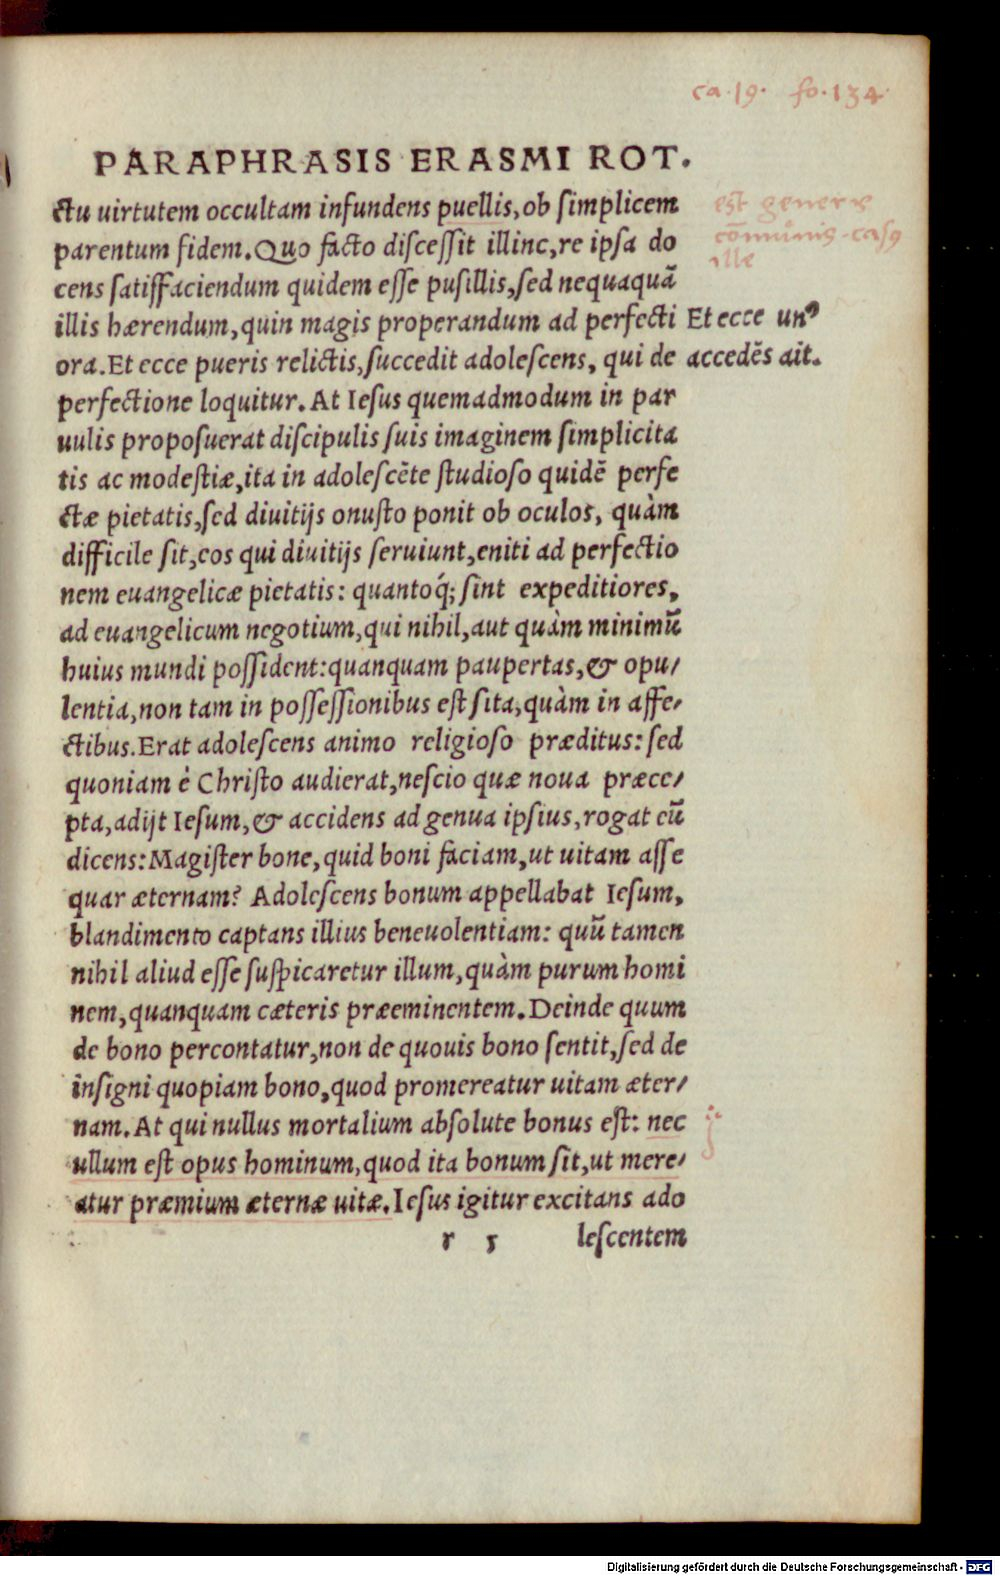 ca·19· fo·134·
PARAPHRASIS ERASMI ROT.
ctu uirtutem occultam infundens puellis, ob simplicem
parentum fidem. Quo facto discessit illinc, re ipsa do
cens satisfaciendum quidem esse pusillis, sed nequaquã
illis hærendum, quin magis properandum ad perfecti
ora. Et ecce pueris relictis, succedit adolescens, qui de
perfectione loquitur. At Iesus quemadmodum in par
uulis proposuerat discipulis suis imaginem simplicita
tis ac modestiæ, ita in adolescẽte studioso quidẽ perfe
ctæ pietatis, sed diuitijs onusto ponit ob oculos, quàm
difficile sit, eos qui diuitijs seruiunt, eniti ad perfectio
nem euangelicæ pietatis: quantoq́; sint expeditiores,
ad euangelicum negotium, qui nihil, aut quàm minimũ
huius mundi possident: quanquam paupertas, & opu/
lentia, non tam in possessionibus est sita, quàm in affe/
ctibus. Erat adolescens animo religioso præditus: sed
quoniam è Christo audierat, nescio quæ noua præce/
pta, adijt Iesum, & accidens ad genua ipsius, rogat eũ
dicens: Magister bone, quid boni faciam, ut uitam asse
quar æternam? Adolescens bonum appellabat Iesum,
blandimento captans illius beneuolentiam: quũ tamen
nihil aliud esse suspicaretur illum, quàm purum homi
nem, quanquam cæteris præeminentem. Deinde quum
de bono percontatur, non de quouis bono sentit, sed de
insigni quopiam bono, quod promereatur uitam æter/
nam. At qui nullus mortalium absolute bonus est: nec
ullum est opus hominum, quod ita bonum sit, ut mere/
atur præmium æternæ uitæ. Iesus igitur excitans ado
r 5 lescentem
est generis
cõmunis casus
ille
Et ecce unꝰ
accedẽs ait.
Digitalisierung gefördert durch die Deutsche Forschungsgemeinschaft - DFG